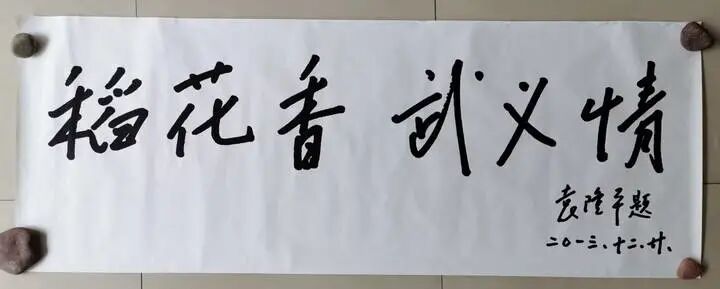 稻花香 武义情
袁隆平题
二〇一三、十二、廿、